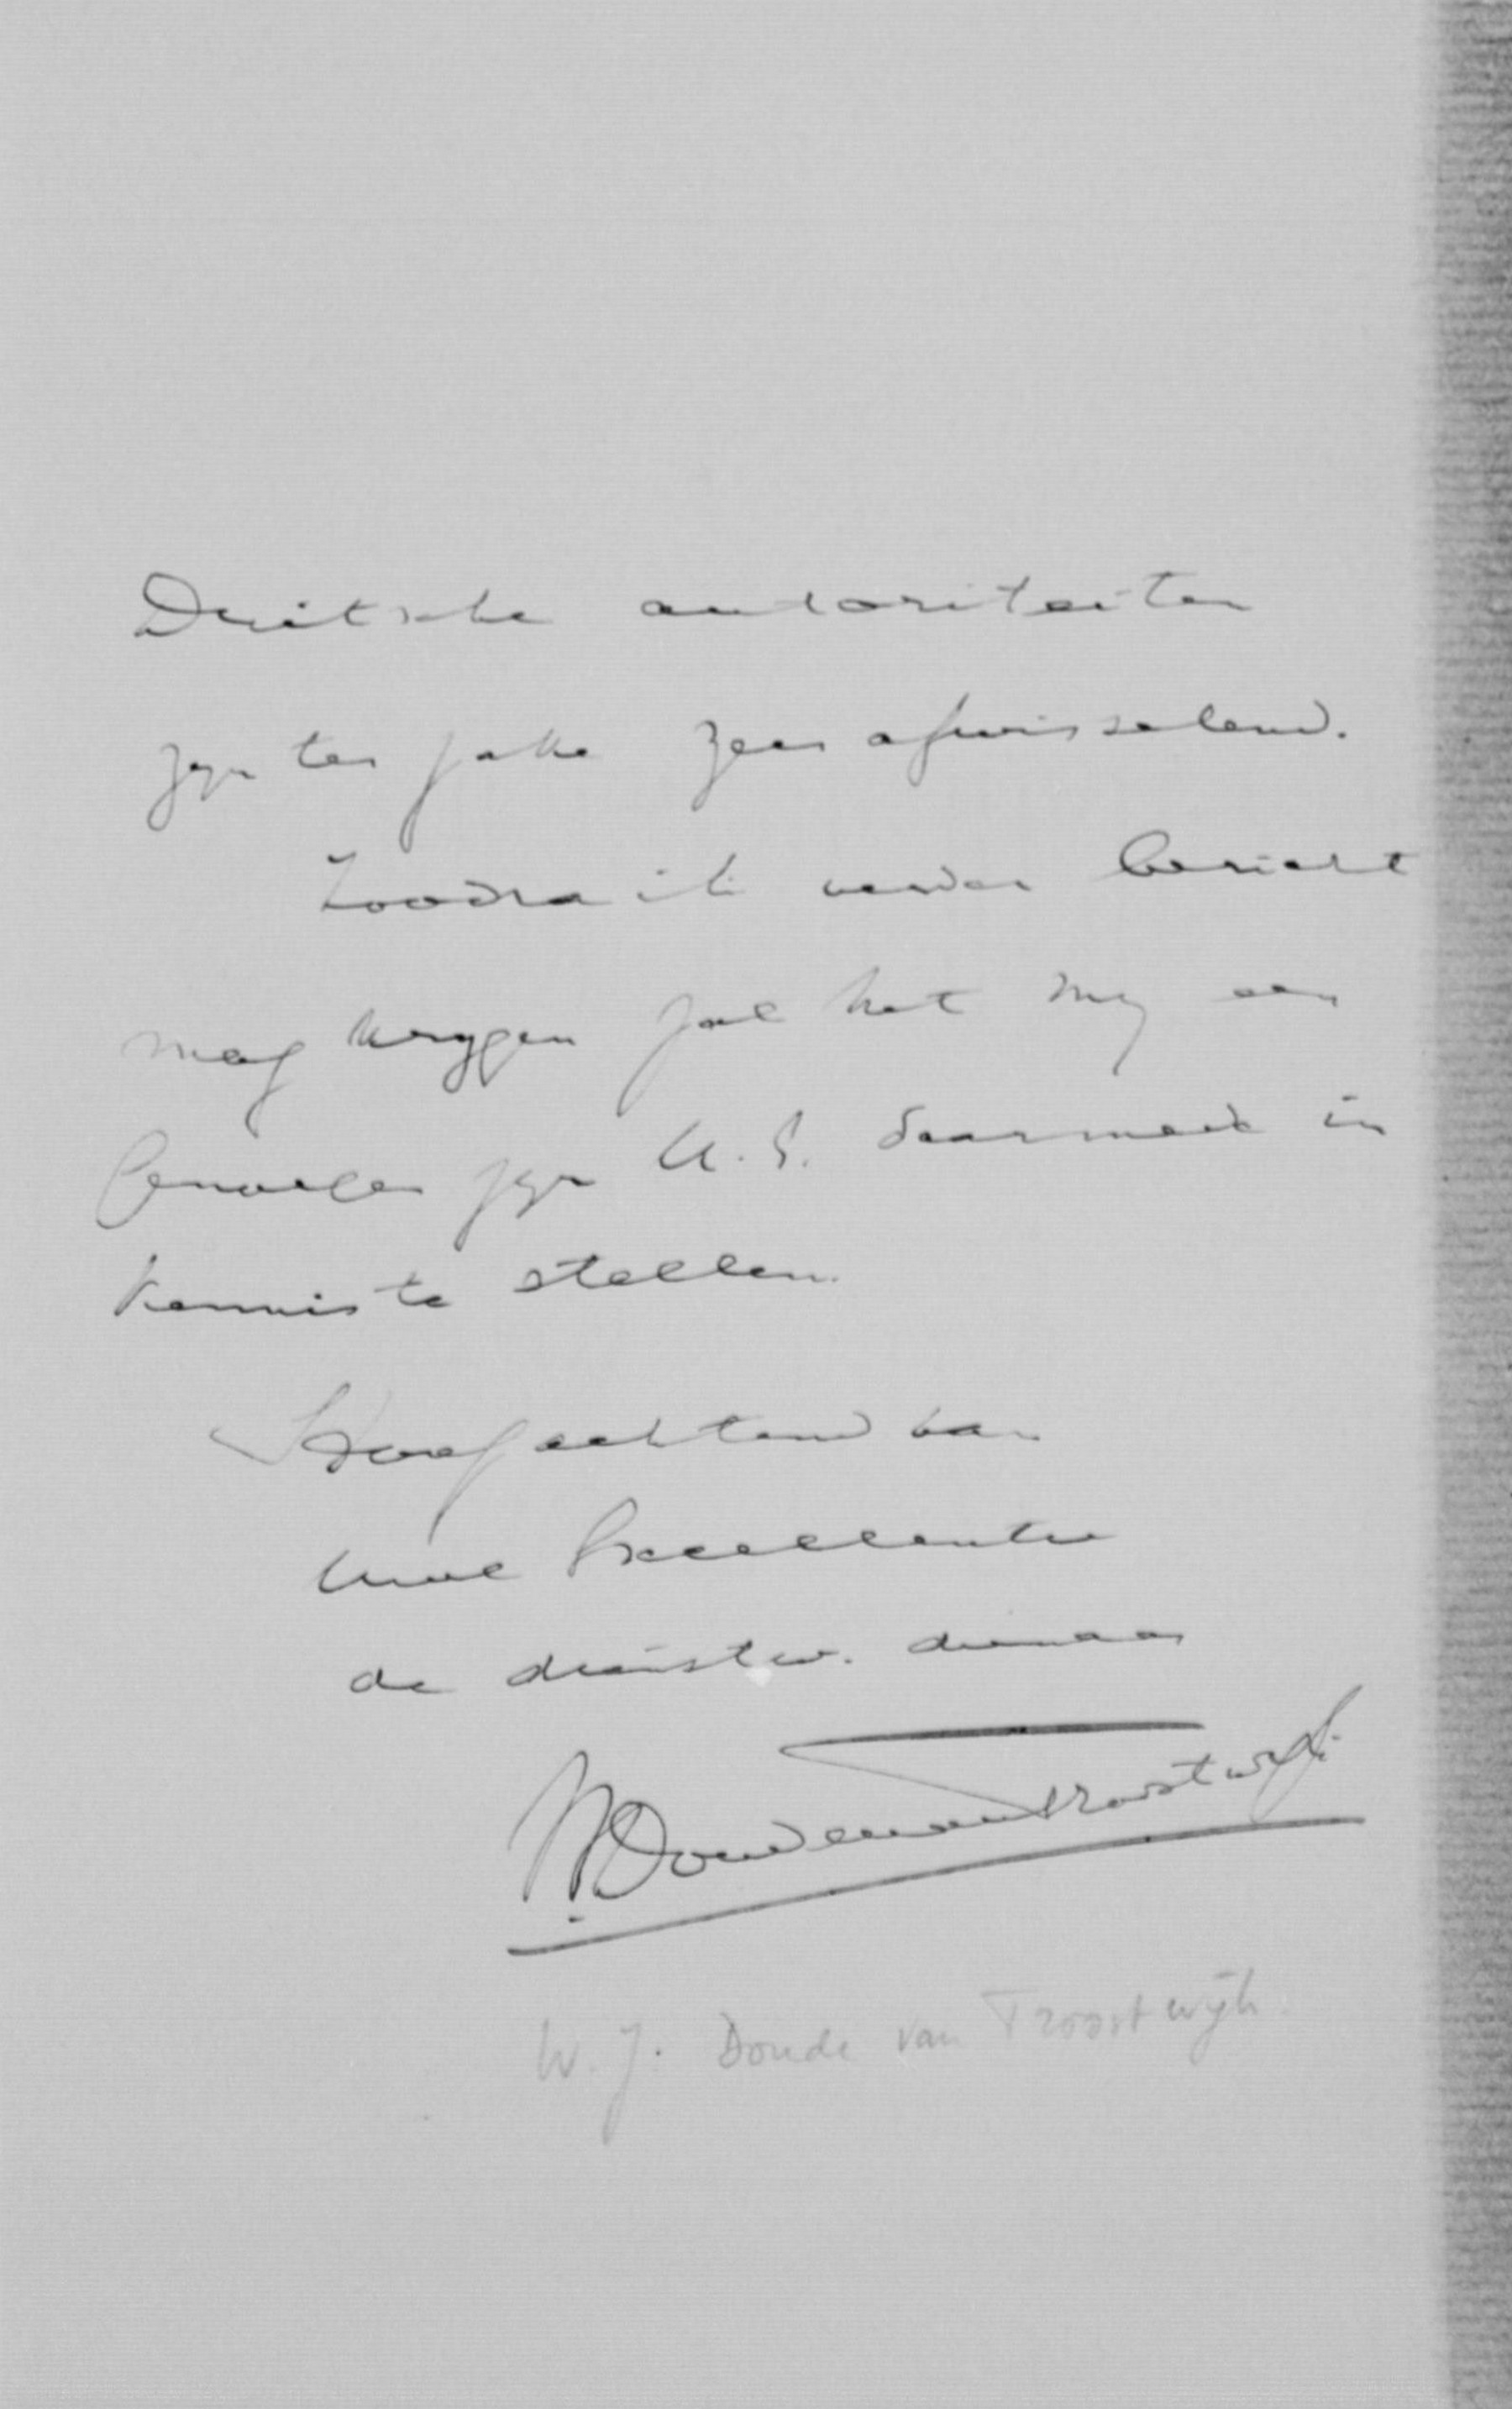 Duitsche autoriteiten
zyn ter zake zeer afwisselend.
Zoodra ik verder bericht
mag krygen zal het my een
genoegen zyn U.E. daarmede in
kennis te stellen.
Hoogachtend van
Uwe Excellentie
de dienstw. dienaar
WDoudevanTroostwyk
W. J. Doude van Troostwijk.